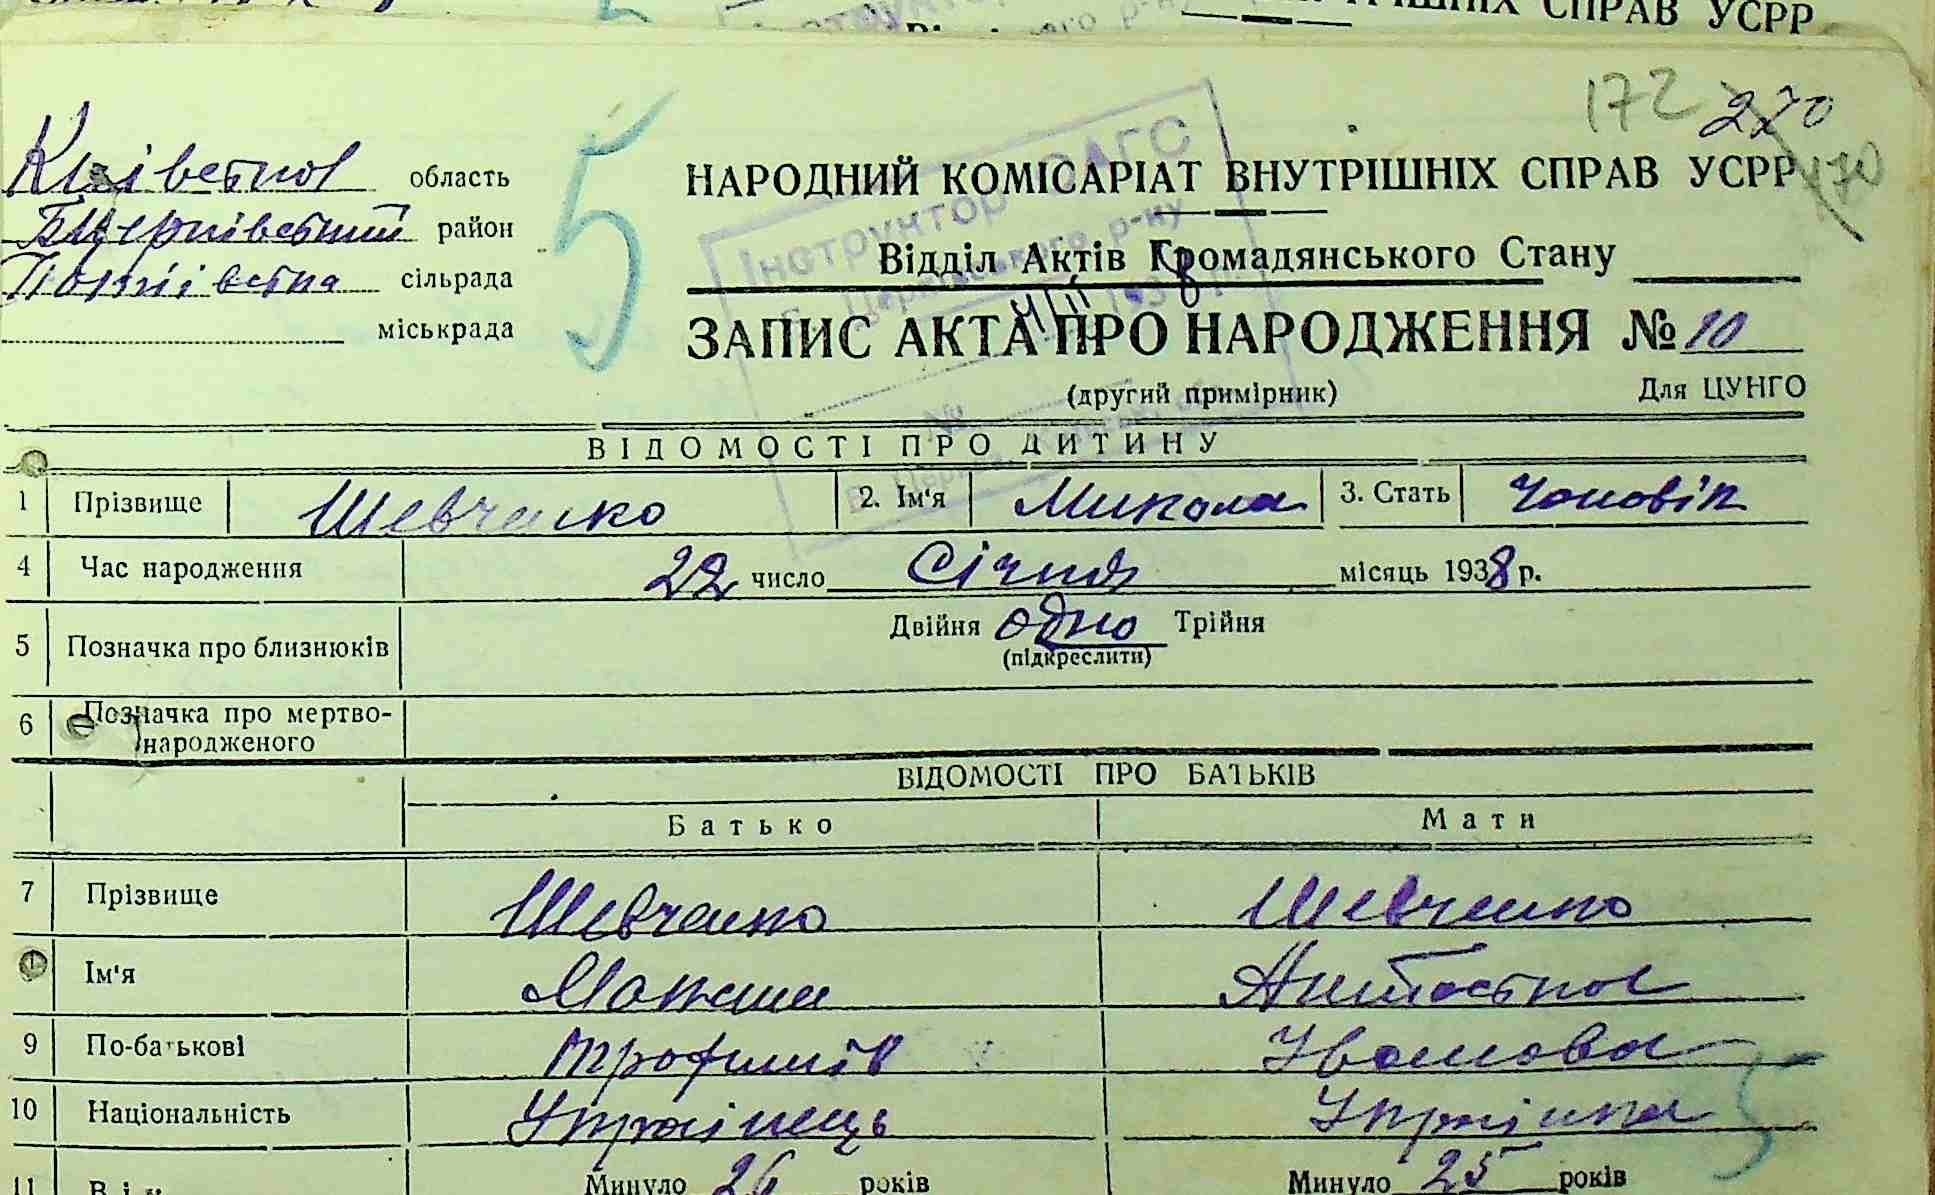 ІШНІХ СПРАВ УСРР
172 270
170
5
Київської область
Б-Церківський район
сільрада
міськрада
НАРОДНИЙ КОМІСАРІАТ ВНУТРІШНІХ СПРАВ УСРР
Відділ Актів Громадянського Стану
ЗАПИС АКТА ПРО НАРОДЖЕННЯ № 10
(другий примірник) Для ЦУНГО
Інструктор ЗАГС
Церківського р-ну
ВІДОМОСТІ ПРО ДИТИНУ
1 Прізвище Шевченко 2. Ім'я Микола 3. Стать Чоловік
4 Час народження 22 число Січня місяць 1938 р.
5 Позначка про близнюків Двійня одно Трійня
(підкреслити)
6 Позначка про мертво-
народженого
ВІДОМОСТІ ПРО БАТЬКІВ
Батько Мати
7 Прізвище Шевченко Шевченко
Ім'я
9 По-батькові Трофимів Іванова
10 Національність Українець Українка
11 Вік Минуло 26 років Минуло 25 років